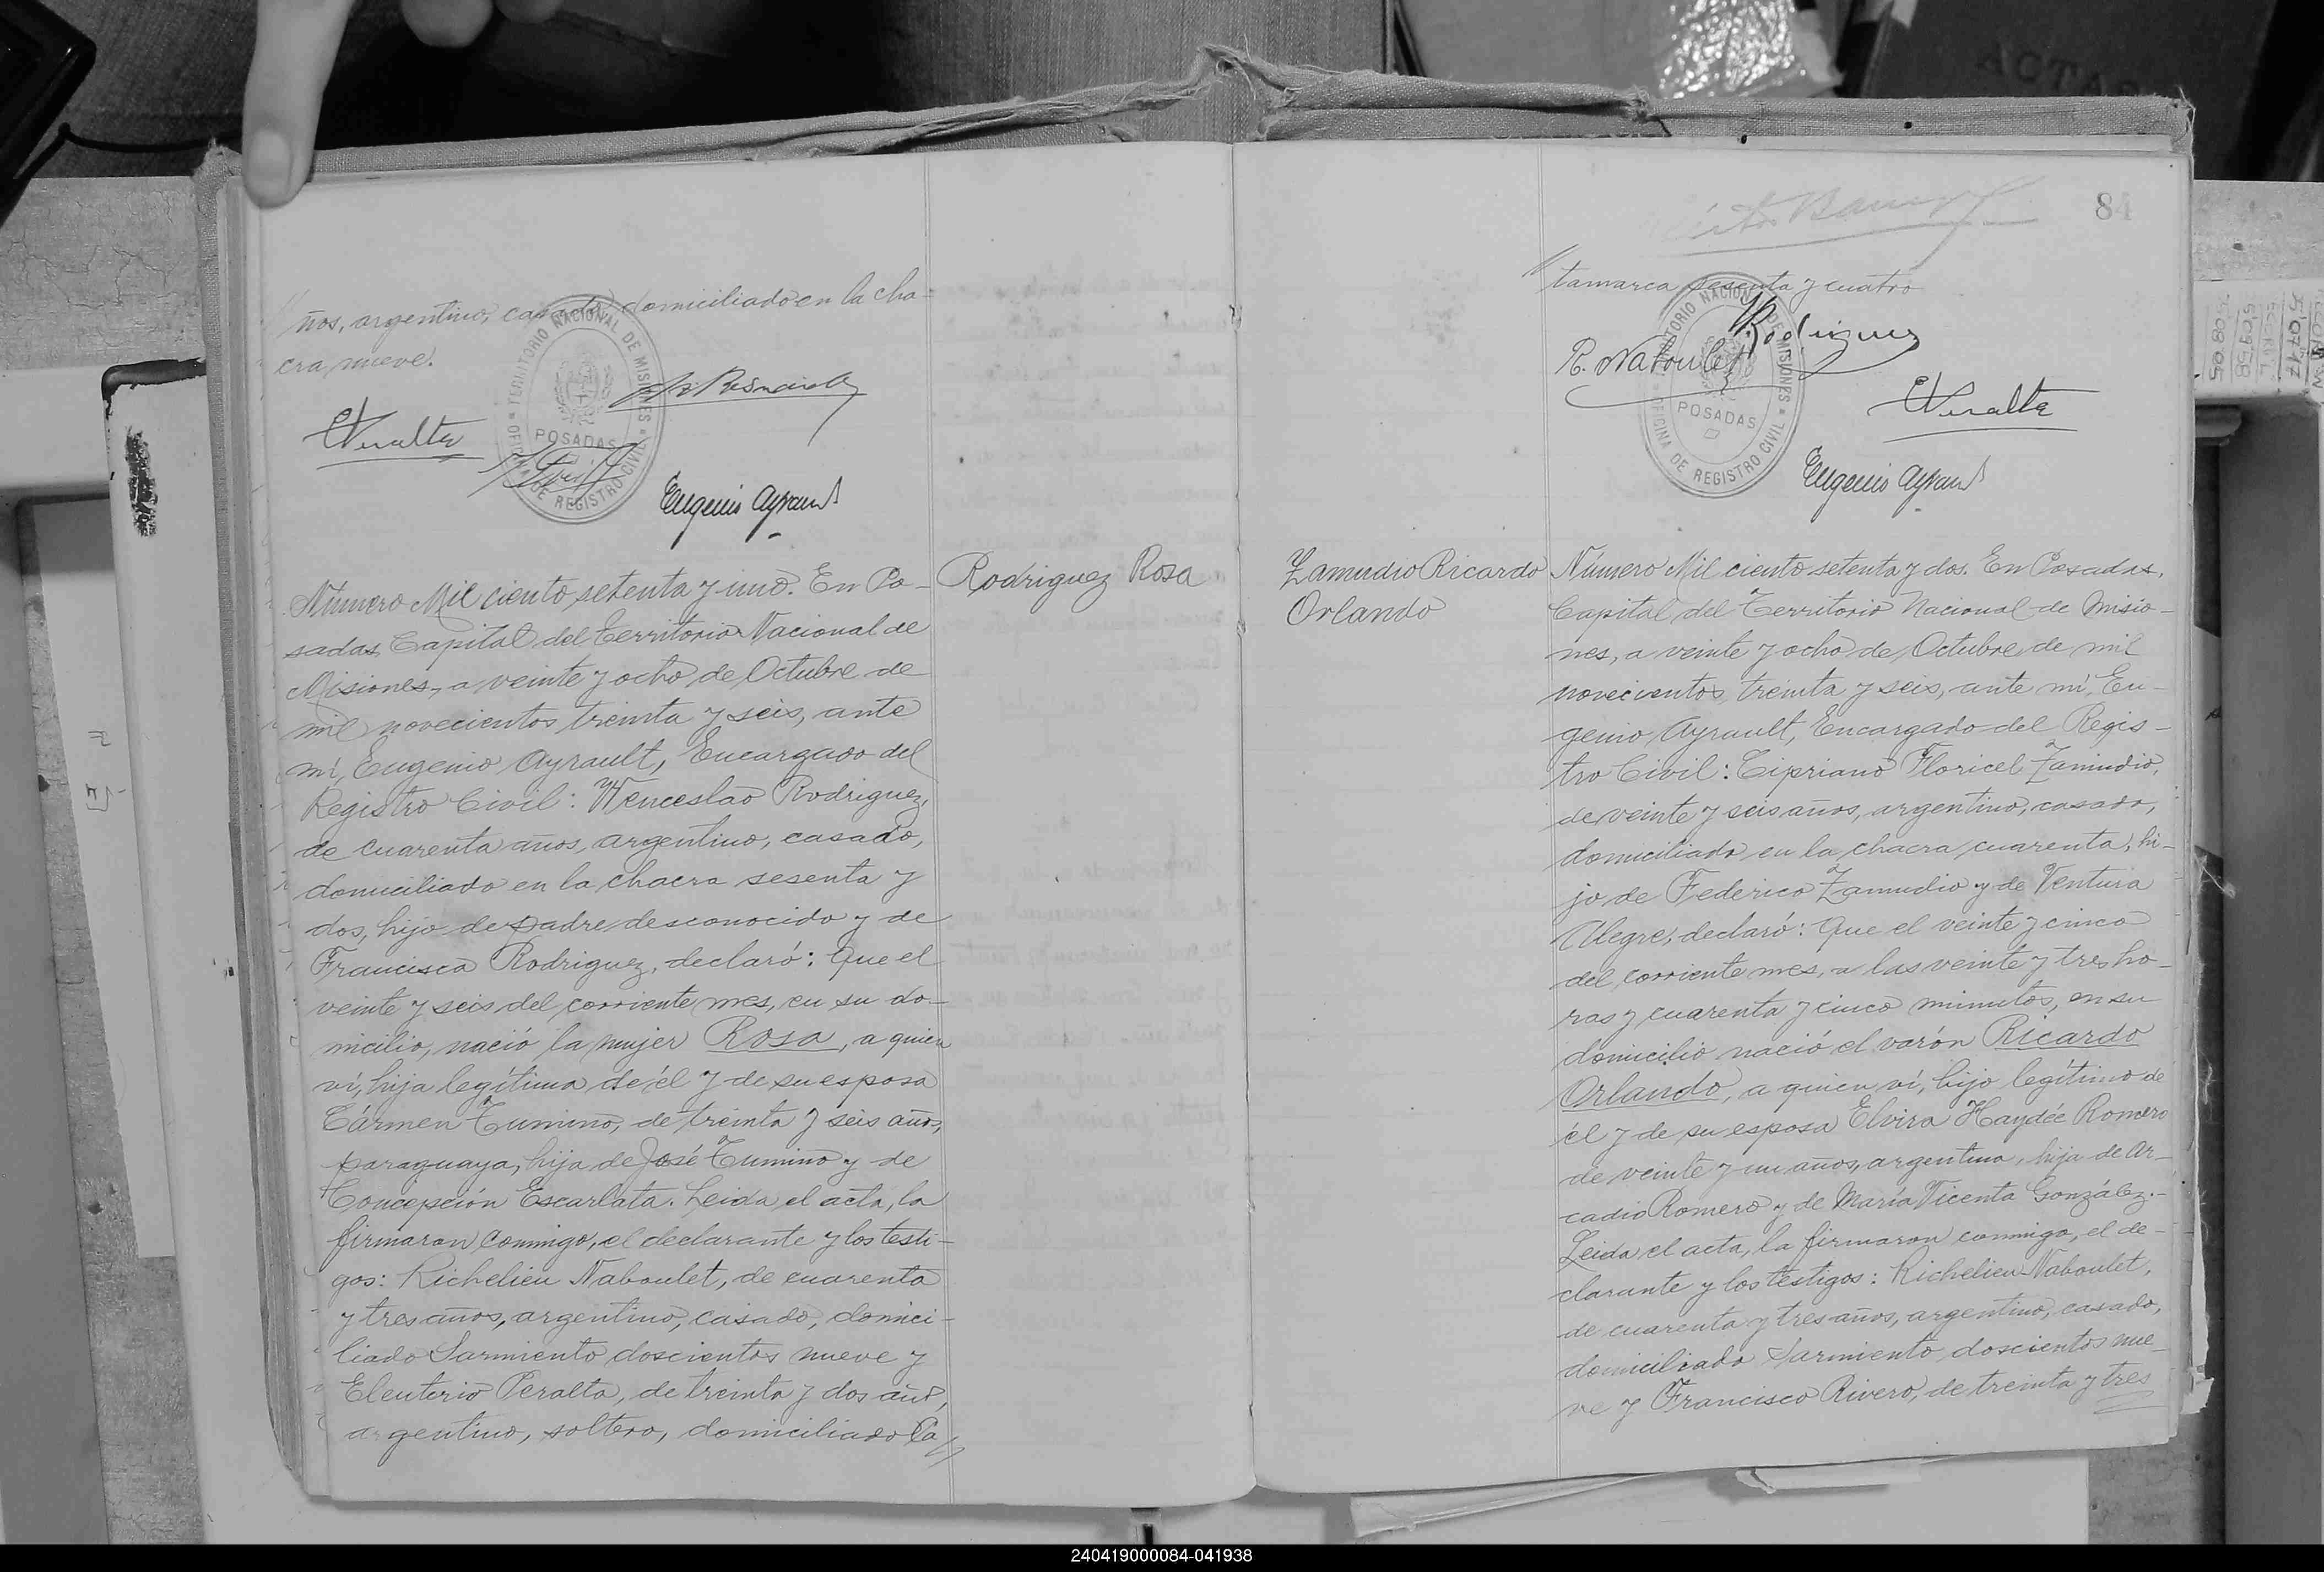 ños, argentino, casado, domiciliado en la cha-
cra nueve.
TERRITORIO NACIONAL DE MISIONES
OFICINA DE REGISTRO CIVIL
POSADAS
EPeralta
Eugenio Ayrault
Número Mil ciento setenta y uno. En Po-
sadas Capital del Territorio Nacional de
Misiones, a veinte y ocho de Octubre de
mil novecientos treinta y seis, ante
mí, Eugenio Ayrault, Encargado del
Registro Civil: Wenceslao Rodriguez,
de cuarenta años, argentino, casado,
domiciliado en la chacra sesenta y
dos, hijo de padre desconocido y de
Francisca Rodriguez, declaró: Que el
veinte y seis del corriente mes, en su do-
micilio, nació la mujer Rosa, a quien
ví, hija legítima de él y de su esposa
Cármen Tumino, de treinta y seis años,
paraguaya, hija de José Tumino y de
Concepción Escarlata. Leida el acta, la
firmaron conmigo, el declarante y los testi-
gos: Richelieu Naboulet, de cuarenta
y tres años, argentino, casado, domici-
liado Sarmiento doscientos nueve y
Eleuterio Peralta, de treinta y dos años,
argentino, soltero, domiciliado Ca//
Rodriguez Rosa
84
//tamarca sesenta y cuatro
TERRITORIO NACIONAL DE MISIONES
OFICINA DE REGISTRO CIVIL
POSADAS
WRodriguez
R. Naboulet
EPeralta
Eugenio Ayrault
Zamudio Ricardo
Orlando
Número Mil ciento setenta y dos. En Posadas,
Capital del Territorio Nacional de Misio-
nes, a veinte y ocho de Octubre de mil
novecientos treinta y seis, ante mí, Eu-
genio Ayrault, Encargado del Regis-
tro Civil: Cipriano Floricel Zamudio,
de veinte y seis años, argentino, casado,
domiciliado en la chacra cuarenta, hi-
jo de Federico Zamudio y de Ventura
Alegre, declaró: Que el veinte y cinco
del corriente mes, a las veinte y tres ho-
ras y cuarenta y cinco minutos, en su
domicilio nació el varón Ricardo
Orlando, a quien ví, hijo legítimo de
él y de su esposa Elvira Haydée Romero
de veinte y un años, argentina, hija de Ar-
cadio Romero y de María Vicenta González.-
Leida el acta, la firmaron conmigo, el de-
clarante y los testigos: Richelieu Naboulet,
de cuarenta y tres años, argentino, casado,
domiciliado Sarmiento doscientos nue-
ve y Francisco Rivero, de treinta y tres
240419000084-041938